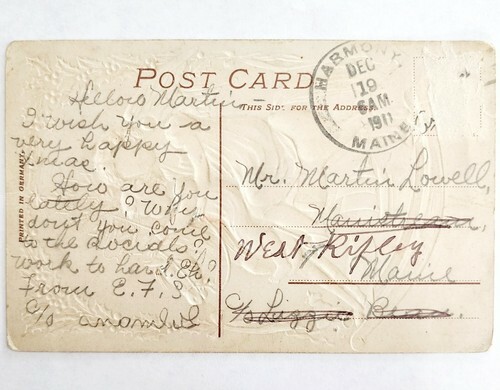 POST CARD
THIS SIDE FOR THE ADDRESS
HARMONY,
DEC
19
6AM
1911
MAINE
PRINTED IN GERMANY
Hellow Martin —
I wish you a
very happy
Xmas.
How are you
lately? Why
dont you come
to the socials?
work to hard. Eh?
From E.F.S
C/o
Mr. Martin Lowell,
Mainstream
West Ripley
Maine
C/o Lizzie Bean.